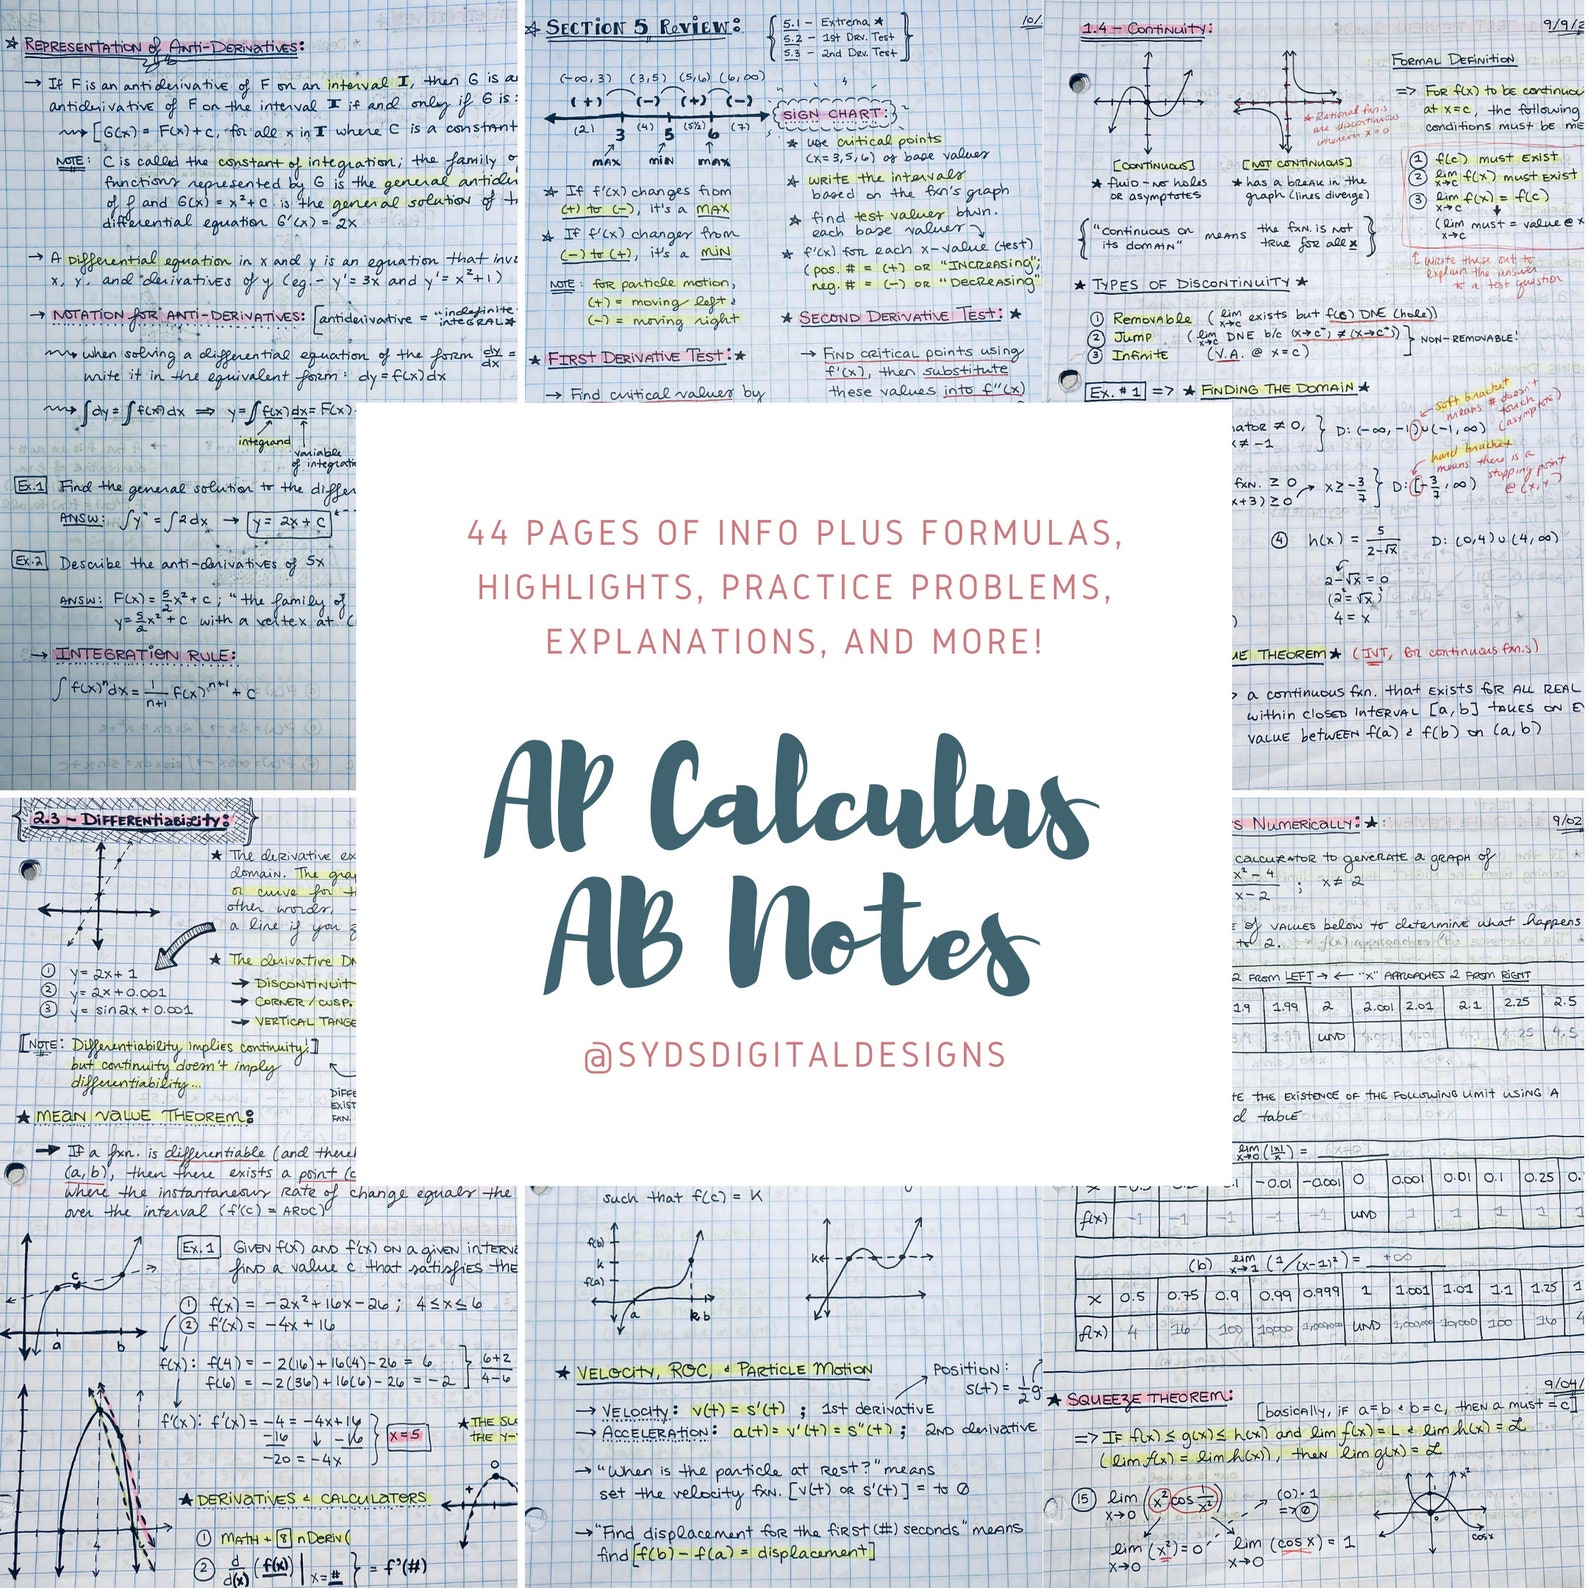 ★ REPRESENTATION of ANTI-DERIVATIVES:
→ If F is an antiderivative of F on an interval I, then G is a
antiderivative of F on the interval I if and only if G is:
[G(x) = F(x) + C, for all x in I where C is a constant
NOTE: C is called the constant of integration; the family o
functions represented by G is the general antider
of f and G(x) = x² + c is the general solution of t
differential equation G'(x) = 2x
→ A differential equation in x and y is an equation that inv
x, y, and derivatives of y (eg. - y' = 3x and y' = x² + 1)
→ NOTATION for ANTI-DERIVATIVES: [antiderivative = "indefinite
INTEGRAL★
when solving a differential equation of the form dy/dx =
write it in the equivalent form: dy = f(x) dx
∫dy = ∫f(x) dx ⇒ y = ∫f(x) dx = F(x)
integrand
variable
of integrati
Ex.1 Find the general solution to the differ
ANSW: ∫y' = ∫2dx → y = 2x + C
Ex.2 Describe the anti-derivatives of 5x
ANSW: F(x) = 5/2 x² + c; "the family of
y = 5/2 x² + c with a vertex at (
→ INTEGRATION RULE:
∫f(x)ⁿ dx = 1/n+1 f(x)ⁿ⁺¹ + C
☆ SECTION 5 REVIEW:
5.1 - Extrema ★
5.2 - 1st Drv. Test
5.3 - 2nd Drv. Test
10/
(-∞, 3) (3,5) (5,6) (6,∞)
(+) (-) (+) (-)
(2) 3 (4) 5 (5½) 6 (7)
MAX MIN MAX
★ If f'(x) changes from
(+) to (-), it's a MAX
★ If f'(x) changes from
(-) to (+), it's a MIN
NOTE: for particle motion,
(+) = moving left &
(-) = moving right
★ FIRST DERIVATIVE TEST: ★
→ Find critical values by
SIGN CHART:
★ use critical points
(x = 3,5,6) as base values
★ WRITE the intervals
based on the fxn's graph
★ find test values btwn.
each base value
★ f'(x) for each x-value (test)
(pos. # = (+) or "INCREASING";
neg. # = (-) or "DECREASING"
★ SECOND DERIVATIVE TEST: ★
→ Find critical points using
f'(x), then substitute
these values into f''(x)
1.4 - Continuity:
9/9/2
FORMAL DEFINITION
=> FOR f(x) to be continuou
at x=c, the following
conditions must be me
① f(c) must EXIST
② lim x→c f(x) must EXIST
③ lim x→c f(x) = f(c)
(lim x→c must = value @ x
↑ Write these out to
explain the answer
to a test question
★ Rational fxn.s
are discontinuous
whenever x = 0
[CONTINUOUS]
★ fluid - no holes
or asymptotes
[NOT CONTINUOUS]
★ has a break in the
graph (lines diverge)
{"continuous on its domain" means the fxn. is not
true for all x}
★ TYPES OF DISCONTINUITY ★
① Removable (lim x→c exists but f(c) DNE (hole))
② Jump (lim x→c DNE b/c (x→c⁻) ≠ (x→c⁺))
③ Infinite (V.A. @ x=c)
NON-REMOVABLE!
Ex. #1 => ★ FINDING THE DOMAIN ★
nator ≠ 0,
x ≠ -1
D: (-∞, -1) ∪ (-1, ∞)
soft bracket
means # doesn't
touch
(asymptote)
fxn. ≥ 0
x+3) ≥ 0 → x ≥ -3/7
D: [-3/7, ∞)
hard bracket
means there is a
stopping point
@ (x,y)
④ h(x) = 5/2-√x D: (0,4) ∪ (4,∞)
2-√x = 0
(2 = √x)²
4 = x
UE THEOREM ★ (IVT, for continuous fxn.s)
a continuous fxn. that EXISTS FOR ALL REAL
within CLOSED INTERVAL [a,b] TAKES ON E
VALUE BETWEEN f(a) & f(b) on (a,b)
44 PAGES OF INFO PLUS FORMULAS,
HIGHLIGHTS, PRACTICE PROBLEMS,
EXPLANATIONS, AND MORE!
AP Calculus
AB Notes
@SYDSDIGITALDESIGNS
2.3 - DIFFERENTIABILITY:
★ The derivative ex
domain. The gra
or curve for t
other words,
a line if you z
① y = 2x + 1
② y = 2x + 0.001
③ y = sin2x + 0.001
★ The derivative DN
→ DISCONTINUIT
→ CORNER / CUSP.
→ VERTICAL TANGE
[NOTE: Differentiability implies continuity!]
but continuity doesn't imply
differentiability...
DIFFE
EXIST
FXN.
★ MEAN VALUE THEOREM:
→ If a fxn. is differentiable (and there
(a,b), then there exists a point (c
where the instantaneous RATE of change equals the
over the interval (f'(c) = AROC)
c
a b
Ex.1 GIVEN f(x) AND f'(x) ON a given interva
find a value c that satisfies the
① f(x) = -2x² + 16x - 26; 4 ≤ x ≤ 6
② f'(x) = -4x + 16
f(x): f(4) = -2(16) + 16(4) - 26 = 6
f(6) = -2(36) + 16(6) - 26 = -2
6+2
4-6
f'(x): f'(x) = -4 = -4x + 16
-16 -16
-20 = -4x
x = 5
★ THE SL
THE Y-
★ DERIVATIVES & CALCULATORS
① MATH + 8 nDeriv(
② d/d(x) (f(x)) | x=# = f'(#)
such that f(c) = K
f(b)
k
f(a)
a k b
k
★ VELOCITY, ROC, & PARTICLE MOTION
POSITION:
s(t) = ½g
→ VELOCITY: v(t) = s'(t); 1st derivative
→ ACCELERATION: a(t) = v'(t) = s''(t); 2ND derivative
→ "When is the particle at REST?" means
set the velocity fxn. [v(t) or s'(t)] = to 0
→ "Find displacement for the first (#) seconds" means
find [f(b) - f(a) = displacement]
S NUMERICALLY: ★
9/02
CALCULATOR to generate a graph of
x²-4/x-2 ; x ≠ 2
E of VALUES below to determine what happens
to 2.
2 FROM LEFT → ← "X" APPROACHES 2 FROM RIGHT
1.9 1.99 2 2.001 2.01 2.1 2.25 2.5
UND 4.25 4.5
TE THE EXISTENCE OF THE FOLLOWING LIMIT USING A
d TABLE
lim x→0 (|x|/x) =
-0.01 -0.001 0 0.001 0.01 0.1 0.25 0.
f(x) -1 -1 -1 -1 -1 UND 1 1 1 1
(b) lim x→1 (1/(x-1)²) = +∞
x 0.5 0.75 0.9 0.99 0.999 1 1.001 1.01 1.1 1.25 1
f(x) 4 16 100 10,000 1,000,000 UND 1,000,000 10,000 100 16 4
9/04/
★ SQUEEZE THEOREM:
[basically, if a=b & b=c, then a must = c]
=> IF f(x) ≤ g(x) ≤ h(x) and lim f(x) = L & lim h(x) = L
(lim f(x) = lim h(x)), then lim g(x) = L
⑮ lim x→0 (x² cos 1/x²) (0)·1
=> 0
lim x→0 (x²) = 0 lim x→0 (cosx) = 1
x²
cosx